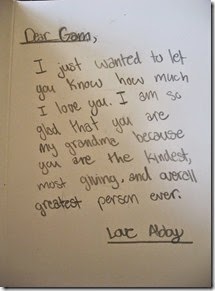 Dear Gama,
I just wanted to let
you know how much
I love you. I am so
glad that you are
my grandma because
you are the kindest,
most giving, and overall
greatest person ever.
Love Abby